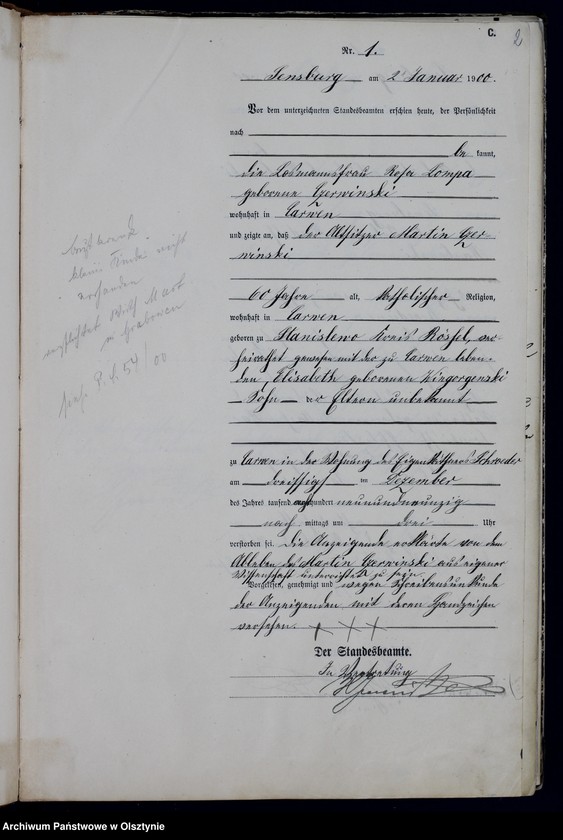 C.
2
Nr. 1.
Sensburg am 2 Januar 1900.
Vor dem unterzeichneten Standesbeamten erschien heute, der Persönlichkeit
nach
be kannt,
die Losmannsfrau Rosa Lompa
geborene Czerwinski
wohnhaft in Carwen
und zeigte an, daß der Altsitzer Martin Czer-
winski
60 Jahre alt, katholischer Religion,
wohnhaft in Carwen
geboren zu Stanislewo Kreis Rössel, ver-
heirathet gewesen mit der zu Carwen leben-
den Elisabeth geborenen
Sohn der Eltern unbekannt
zu Carwen in der Wohnung des Eigenkäthners Schroeder
am dreissigsten Dezember
des Jahres tausend achthundert neunundneunzig
nach mittags um drei Uhr
verstorben sei. Die Anzeigende erklärte von dem
Ableben des Martin Czerwinski aus eigener
Wissenschaft unterrichtet zu sein.
Vorgelesen, genehmigt und wegen Schreibensunkunde
der Anzeigenden mit deren Handzeichen
versehen. + + +
Der Standesbeamte.
In Vertretung
kleine Kinder nicht
vorhanden
P. S. 54/00
Archiwum Państwowe w Olsztynie